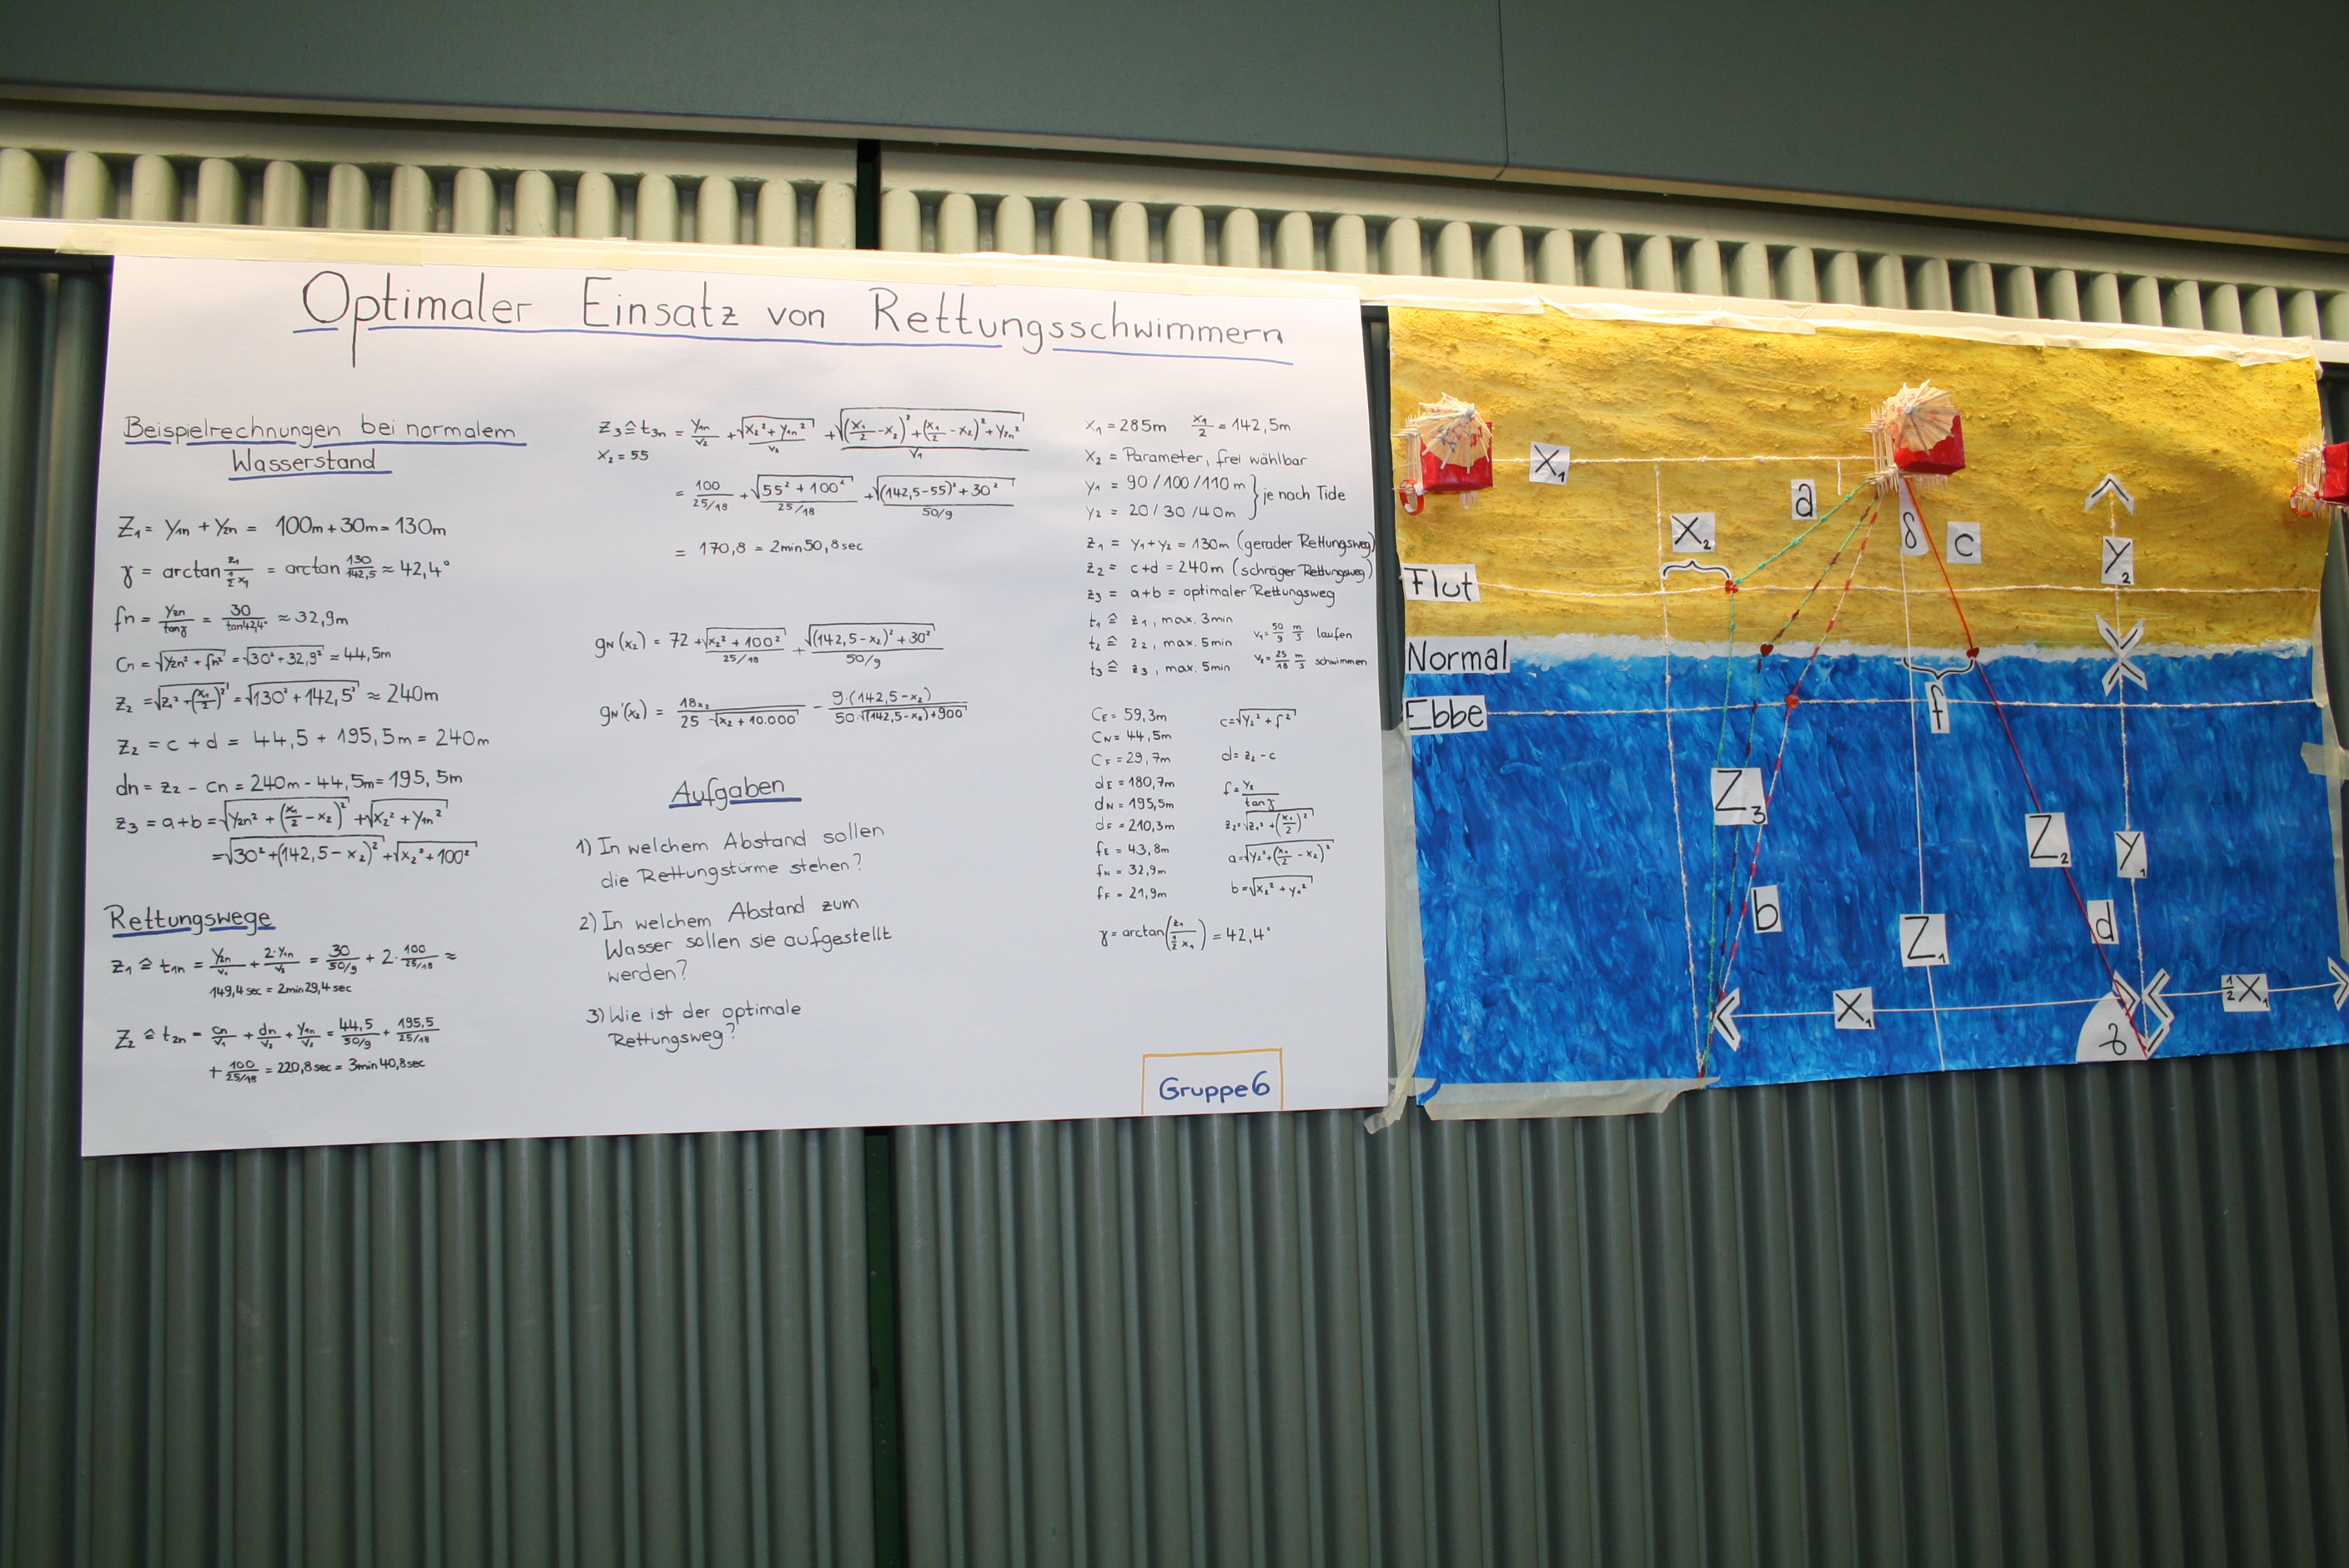 Optimaler Einsatz von Rettungsschwimmern
Beispielrechnungen bei normalem
Wasserstand
Z₁ = y₁n + y₂n = 100m + 30m = 130m
γ = arctan z₁/(½ x₁) = arctan 130/142,5 ≈ 42,4°
fn = y₂n/tanγ = 30/tan42,4° ≈ 32,9m
Cn = √(y₂n² + fn²) = √(30² + 32,9²) ≈ 44,5m
Z₂ = √(z₁² + (x₁/2)²) = √(130² + 142,5²) ≈ 240m
Z₂ = c + d = 44,5 + 195,5m = 240m
dn = z₂ - cn = 240m - 44,5m = 195,5m
Z₃ = a+b = √(y₂n² + (x₁/2 - x₂)²) + √(x₂² + y₁n²)
= √(30² + (142,5 - x₂)²) + √(x₂² + 100²)
Rettungswege
Z₁ ≙ t₁n = y₂n/v₁ + 2·y₁n/v₂ = 30/(50/9) + 2· 100/(25/18) ≈
149,4 sec = 2min 29,4 sec
Z₂ ≙ t₂n = cn/v₁ + dn/v₂ + y₁n/v₂ = 44,5/(50/9) + 195,5/(25/18)
+ 100/(25/18) = 220,8 sec = 3min 40,8sec
Z₃ ≙ t₃n = y₁n/v₂ + √(x₂² + y₁n²)/v₂ + √((x₁/2 - x₂)² + (x₁/2 - x₂)² + y₂n²)/v₁
x₂ = 55
= 100/(25/18) + √(55² + 100²)/(25/18) + √((142,5-55)² + 30²)/(50/9)
= 170,8 = 2min 50,8sec
gN(x₂) = 72 + √(x₂² + 100²)/(25/18) + √((142,5-x₂)² + 30²)/(50/9)
gN'(x₂) = 18x₂/(25·√(x₂ + 10.000)) - 9·(142,5-x₂)/(50·√((142,5-x₂)+900))
Aufgaben
1) In welchem Abstand sollen
die Rettungstürme stehen?
2) In welchem Abstand zum
Wasser sollen sie aufgestellt
werden?
3) Wie ist der optimale
Rettungsweg?
x₁ = 285m x₁/2 = 142,5m
x₂ = Parameter, frei wählbar
y₁ = 90/100/110m } je nach Tide
y₂ = 20/30/40m
z₁ = y₁+y₂ = 130m (gerader Rettungsweg)
z₂ = c+d = 240m (schräger Rettungsweg)
z₃ = a+b = optimaler Rettungsweg
t₁ ≙ z₁, max. 3min
t₂ ≙ z₂, max. 5min v₁ = 50/9 m/s laufen
t₃ ≙ z₃, max. 5min v₂ = 25/18 m/s schwimmen
CE = 59,3m c = √(y₂² + f²)
CN = 44,5m
CF = 29,7m d = z₂ - c
dE = 180,7m
dN = 195,5m f = y₂/tanγ
dF = 210,3m z₂ = √(z₁² + (x₁/2)²)
fE = 43,8m a = √(y₂² + (x₁/2 - x₂)²)
fN = 32,9m
fF = 21,9m b = √(x₂² + y₁²)
γ = arctan(z₁/(½ x₁)) = 42,4°
Gruppe 6
X₁
a
δ
c
X₂
y₂
Flut
Normal
Ebbe
f
Z₃
Z₂
y₁
b
Z₁
d
X₁
½X₁
γ